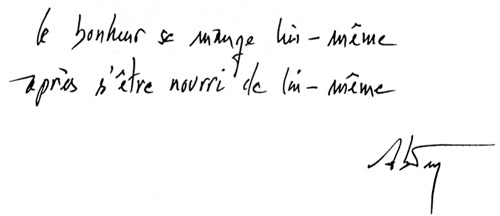 le bonheur se mange lui-même
après s'être nourri de lui-même